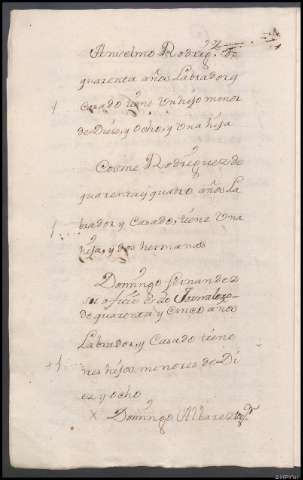 Anselmo Rodrig.z de
quarenta años Labrador y
Casado tiene Un hijo menor
de Diez, y Ocho, y una hija
Cosme Rodriguez de
quarenta y quatro años La
brador y Casado, tiene Una
hija, y dos hermanas
Domingo fernandez
su oficio es de Jornalero
de quarenta y Cinco años
Labrador, y Casado tiene
tres hijos menores de Di
ez y ocho
X Domingo Albarez